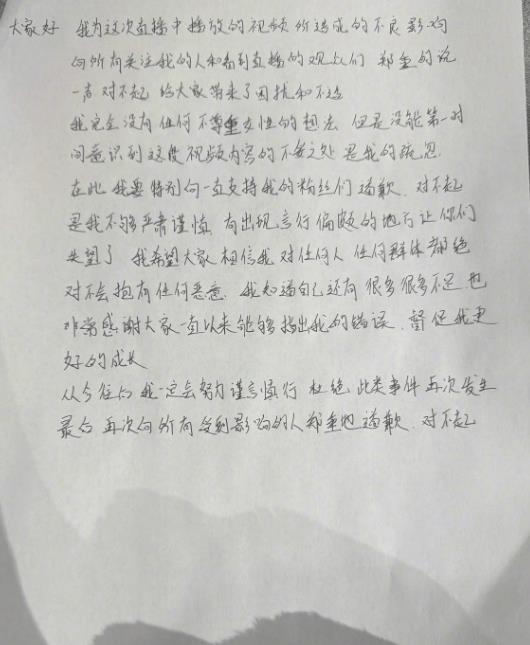 大家好 我为这次直播中播放的视频所造成的不良影响
向所有关注我的人和看到直播的观众们 郑重的说
一声 对不起 给大家带来了困扰和不适
我完全没有任何不尊重女性的想法 但是没能第一时
间意识到这段视频内容的不妥之处 是我的疏忽
在此 我要特别向一直支持我的粉丝们道歉 对不起
是我不够严肃谨慎 有出现言行偏颇的地方让你们
失望了 我希望大家相信我 对任何人 任何群体都绝
对不会抱有任何恶意 我知道自己还有很多很多不足 也
非常感谢大家一直以来能够指出我的错误 督促我更
好的成长
从今往后 我一定会努力谨言慎行 杜绝此类事件再次发生
最后 再次向所有受到影响的人郑重地道歉 对不起